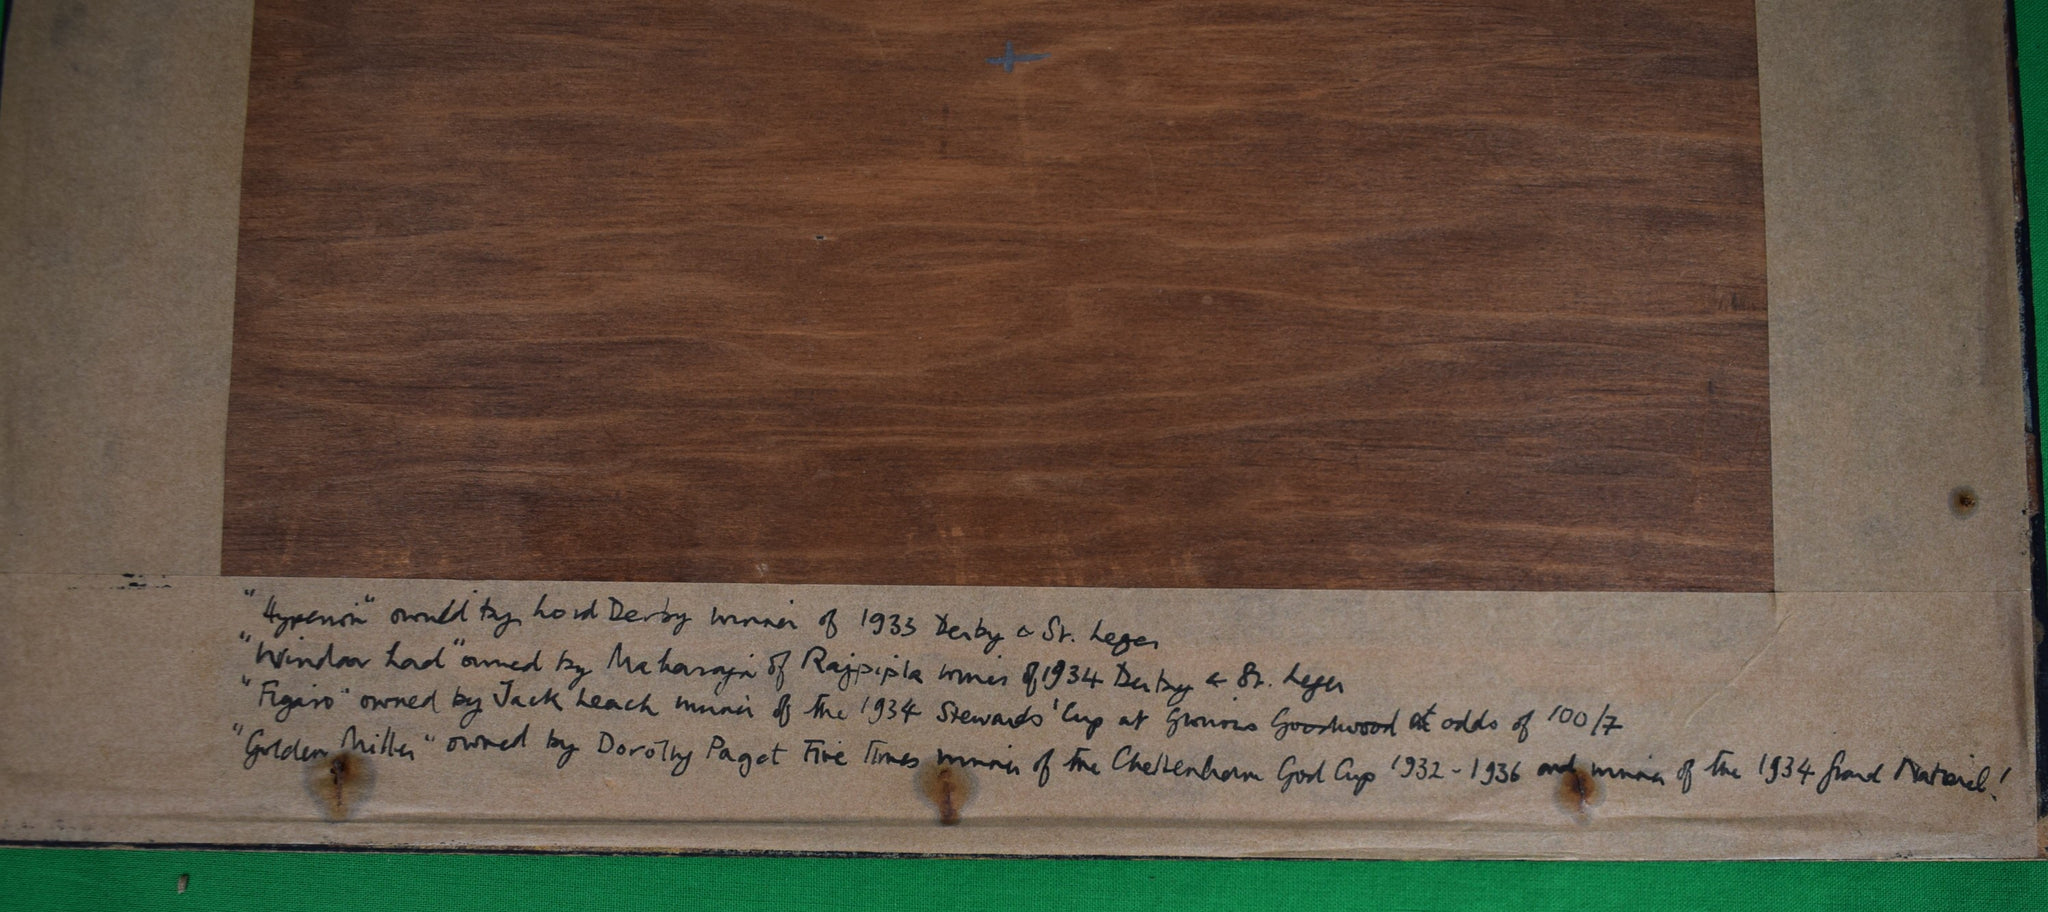 "Hyperion" owned by Lord Derby winner of 1933 Derby & St. Leger
"Windsor Lad" owned by Maharaja of Rajpipla winner of 1934 Derby & St. Leger
"Figaro" owned by Jack Leach winner of the 1934 Stewards' Cup at Glorious Goodwood at odds of 100/7
"Golden Miller" owned by Dorothy Paget Five Times winner of the Cheltenham Gold Cup 1932-1936 and winner of the 1934 Grand National!